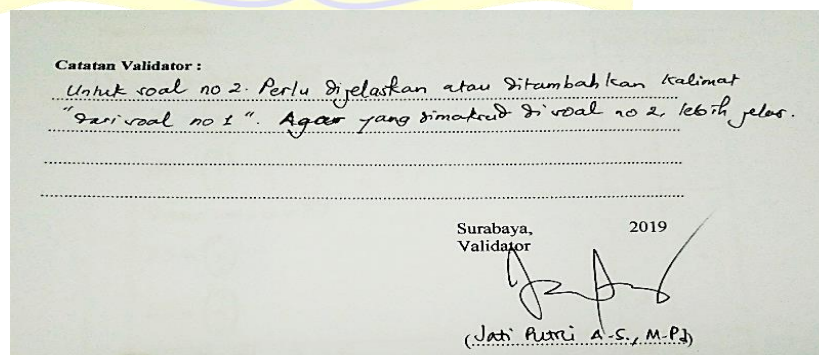 Catatan Validator :
Untuk soal no 2. Perlu dijelaskan atau ditambahkan kalimat
"dari soal no 1". Agar yang dimaksud di soal no 2, lebih jelas.
Surabaya, 2019
Validator
(Jati Putri A.S., M.Pd)